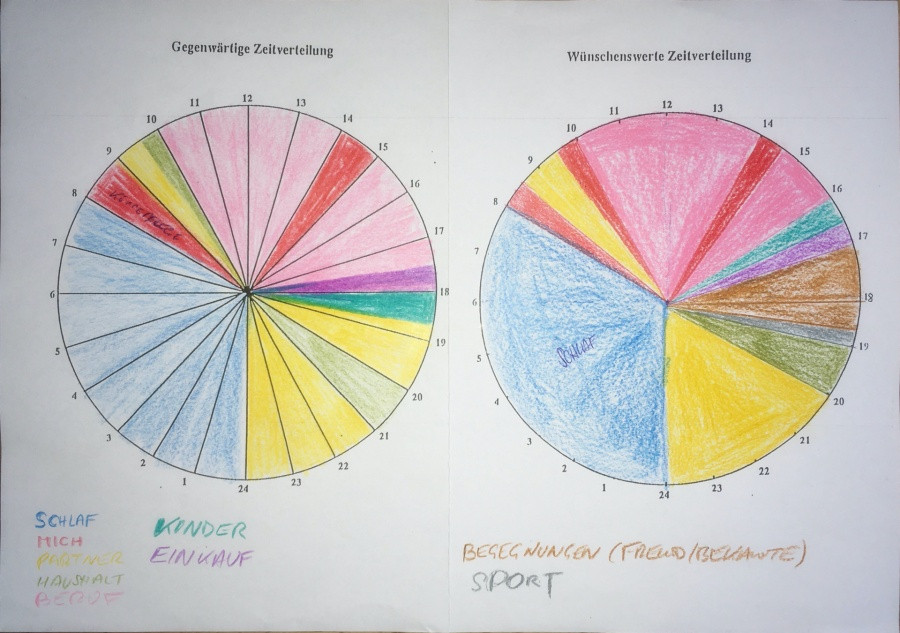 Gegenwärtige Zeitverteilung
12
13
14
15
16
17
18
19
20
21
22
23
24
1
2
3
4
5
6
7
8
9
10
11
SCHLAF
MICH
PARTNER
HAUSHALT
BERUF
KINDER
EINKAUF
Wünschenswerte Zeitverteilung
12
13
14
15
16
17
18
19
20
21
22
23
24
1
2
3
4
5
6
7
8
9
10
11
SCHLAF
BEGEGNUNGEN (FREUND/BEKANNTE)
SPORT